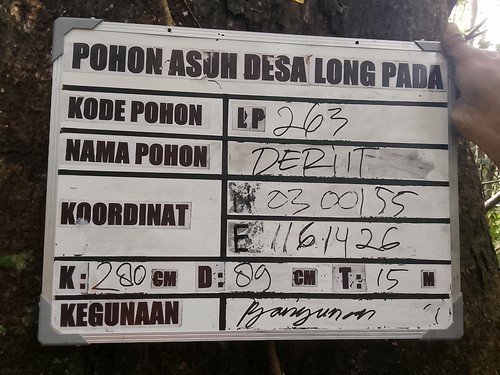 POHON ASUH DESA LONG PADA
KODE POHON LP 263
NAMA POHON DERIIT
KOORDINAT N 03 00155
E 116.1426
K: 280 CM D: 89 CM T: 15 M
KEGUNAAN